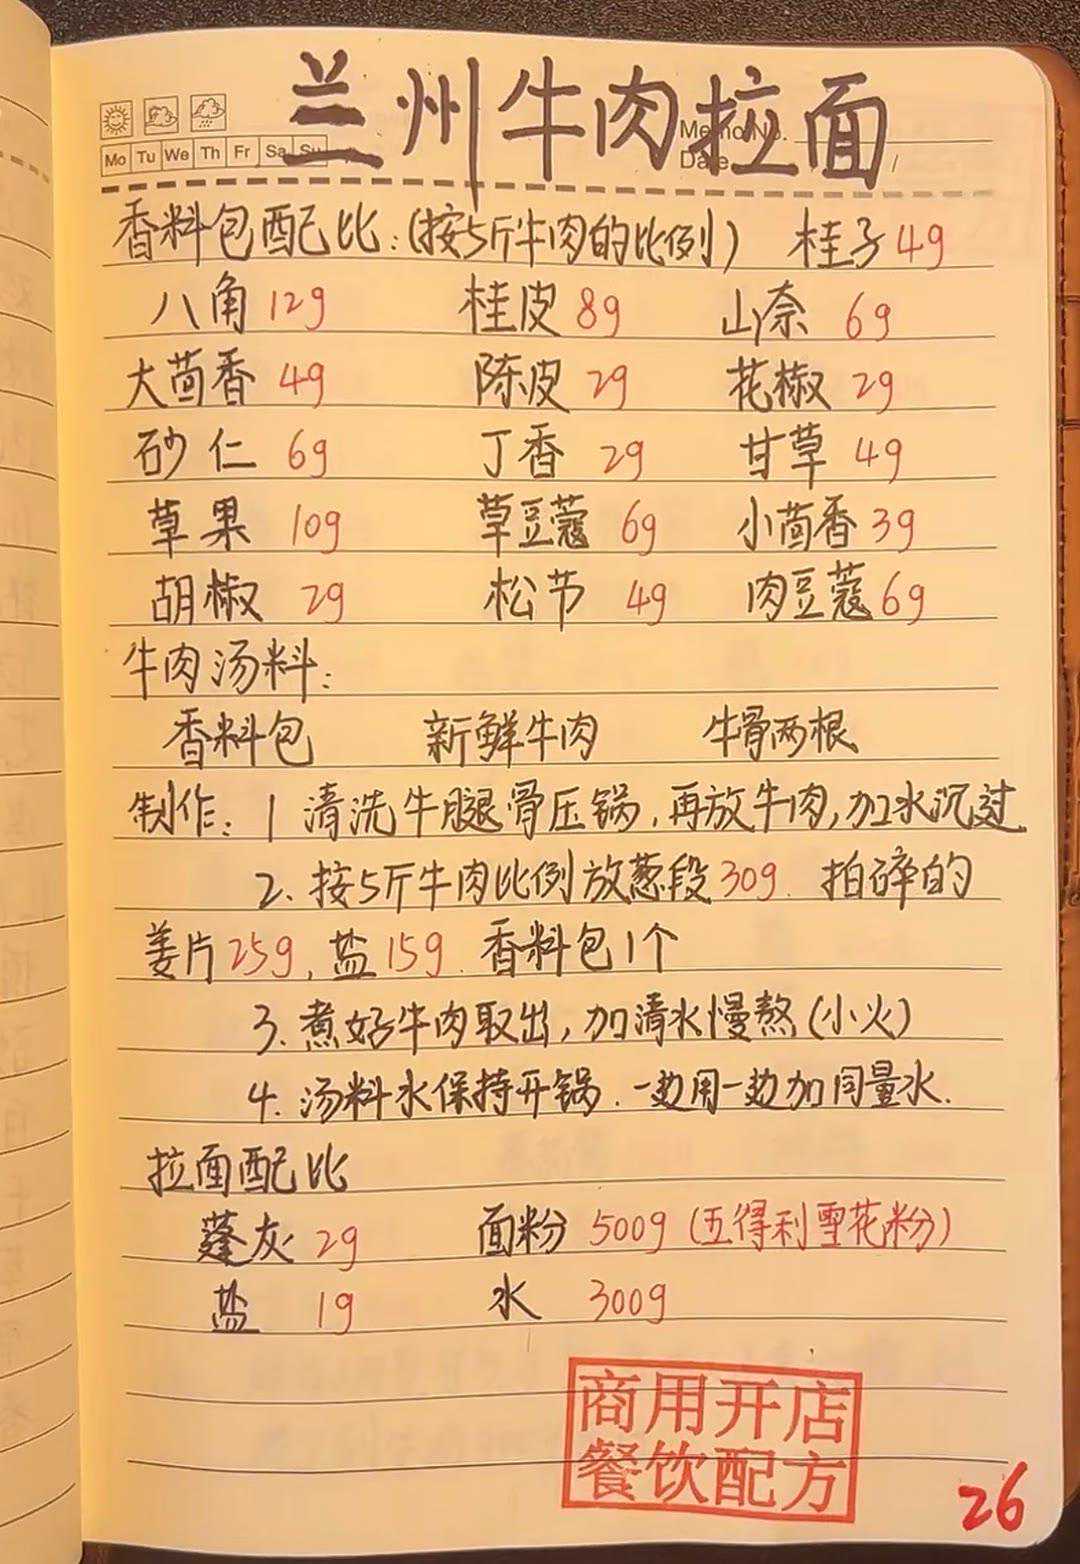 兰州牛肉拉面
Memo No.
Date /
Mo Tu We Th Fr Sa Su
香料包配比:(按5斤牛肉的比例) 桂子4g
八角 12g 桂皮 8g 山奈 6g
大茴香 4g 陈皮 2g 花椒 2g
砂仁 6g 丁香 2g 甘草 4g
草果 10g 草豆蔻 6g 小茴香 3g
胡椒 2g 松节 4g 肉豆蔻 6g
牛肉汤料:
香料包 新鲜牛肉 牛骨两根
制作: 1 清洗牛腿骨压锅,再放牛肉,加水沉过
2. 按5斤牛肉比例放葱段30g. 拍碎的
姜片25g, 盐15g. 香料包1个
3. 煮好牛肉取出,加清水慢熬(小火)
4. 汤料水保持开锅. 一边用一边加同量水.
拉面配比
蓬灰 2g 面粉 500g (五得利雪花粉)
盐 1g 水 300g
商用开店
餐饮配方
26